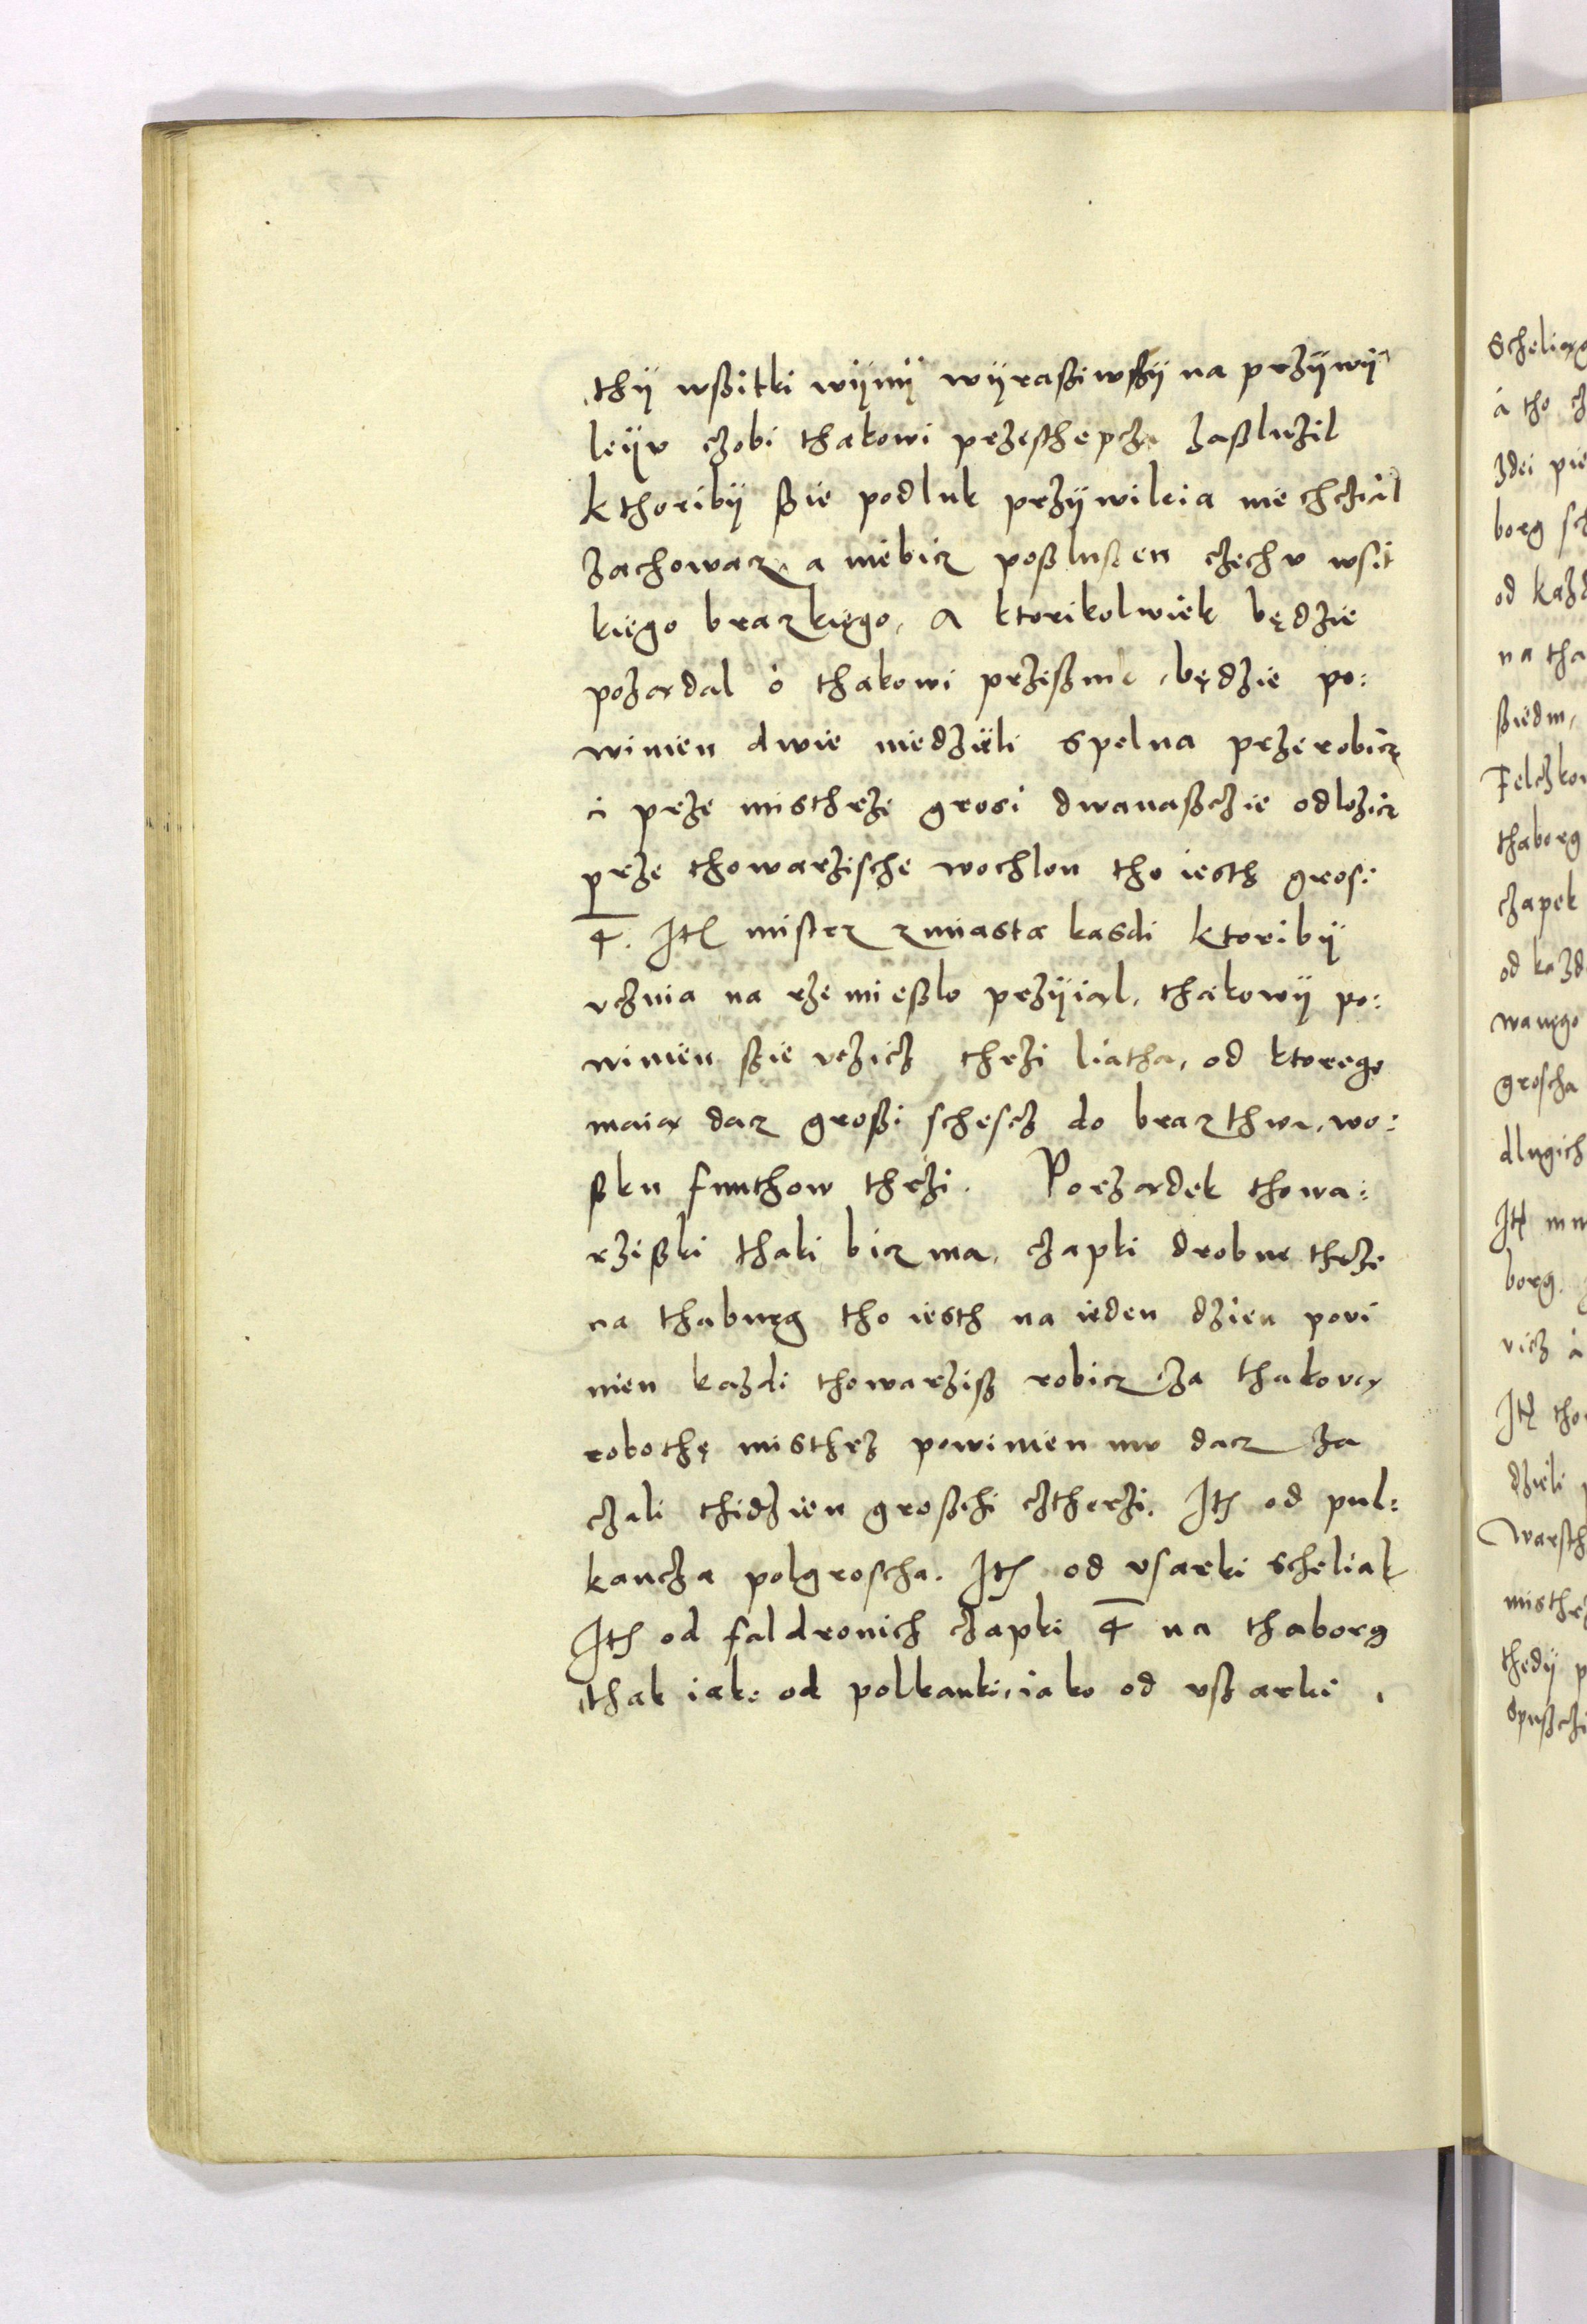 thÿ wßitki wÿmÿ wÿraßiwßÿ na przÿwÿ
leÿu czobi thakowi przesthepcza zaßluzil
kthoribÿ ßie podluk przÿwileia nie chcział
zachowacz, a niebicz poßlußen czechv wsit
kiego braczkiego, A ktorikolwiek będzie
pozadal o thakowi przeßnie, będzie po:
winien dwie niedzieli spelna przerobicz
i prze misthrze grosi dwanaßczie odlozicz
prze thowarzische wochlon tho iesth grosi
4. Itẽ mistrz zmiasta kasdi ktoribÿ
vcznia na rzemießlo przÿial, thakowÿ po:
winien ßie vczicz thrzi liatha, od ktorego
maia dacz großi schescz do braczthwa, wo:
sku funthow thrzi. Porzadek thowa:
rzißki thaki bicz ma, czapki drobne thrzi
na thaburg tho iesth na ieden dzien povi
nien kazdi thowarziß robicz za thakova
robothę misthrz powinien mv dacz za
czali thidzien großchi cztherzi. Itẽ od pul:
kancza polgroscha. Itẽ od vsarki scheliak
Itẽ od faldronich czapki 4 na thaborg
thak iako od polkanki, iako od vßarki,
Scheliag
a tho
zdei
borg
od kazd
na tha
ßiedm,
thaborg
czapek
od kazd
wanego
groscha
dlugich
Itẽ
borg.
vicz a
Itẽ
dzieli
Warsth
misthrz
thedÿ